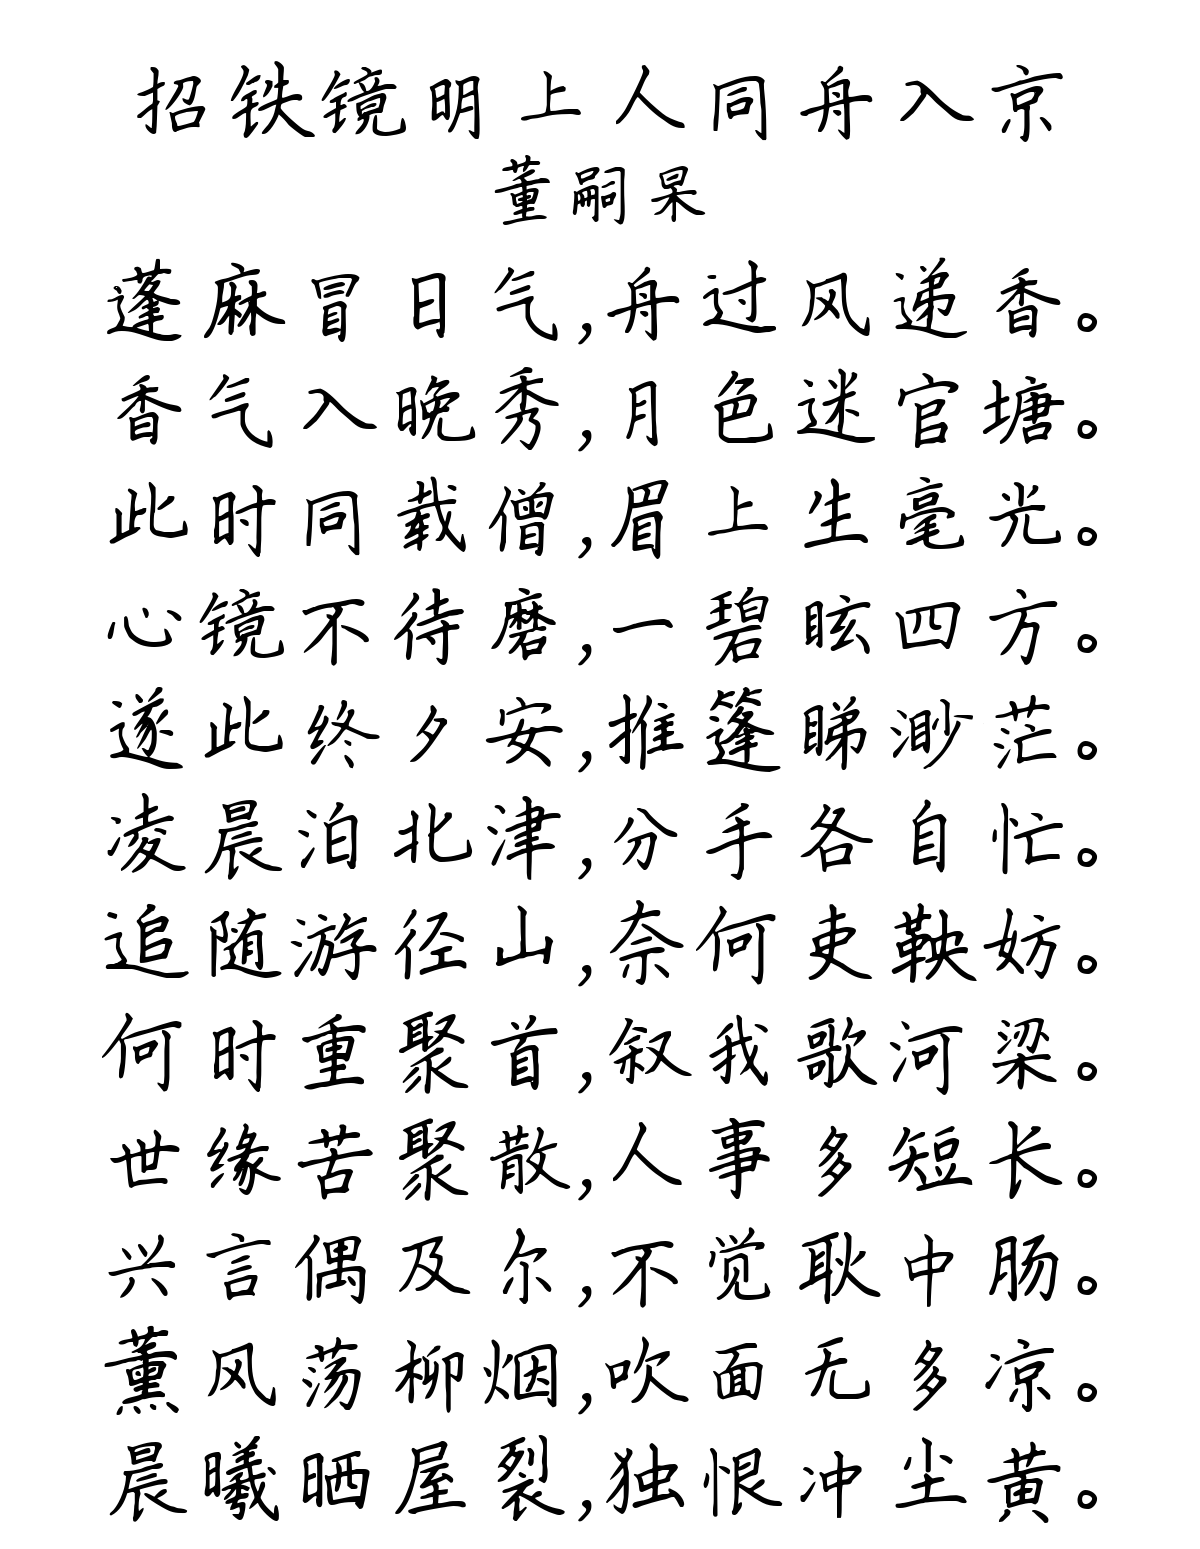 招铁镜明上人同舟入京
董嗣杲
蓬麻冒日气,舟过风递香。
香气入晚秀,月色迷官塘。
此时同载僧,眉上生毫光。
心镜不待磨,一碧眩四方。
遂此终夕安,推篷睇渺茫。
凌晨泊北津,分手各自忙。
追随游径山,奈何吏鞅妨。
何时重聚首,叙我歌河梁。
世缘苦聚散,人事多短长。
兴言偶及尔,不觉耿中肠。
薰风荡柳烟,吹面无多凉。
晨曦晒屋裂,独恨冲尘黄。